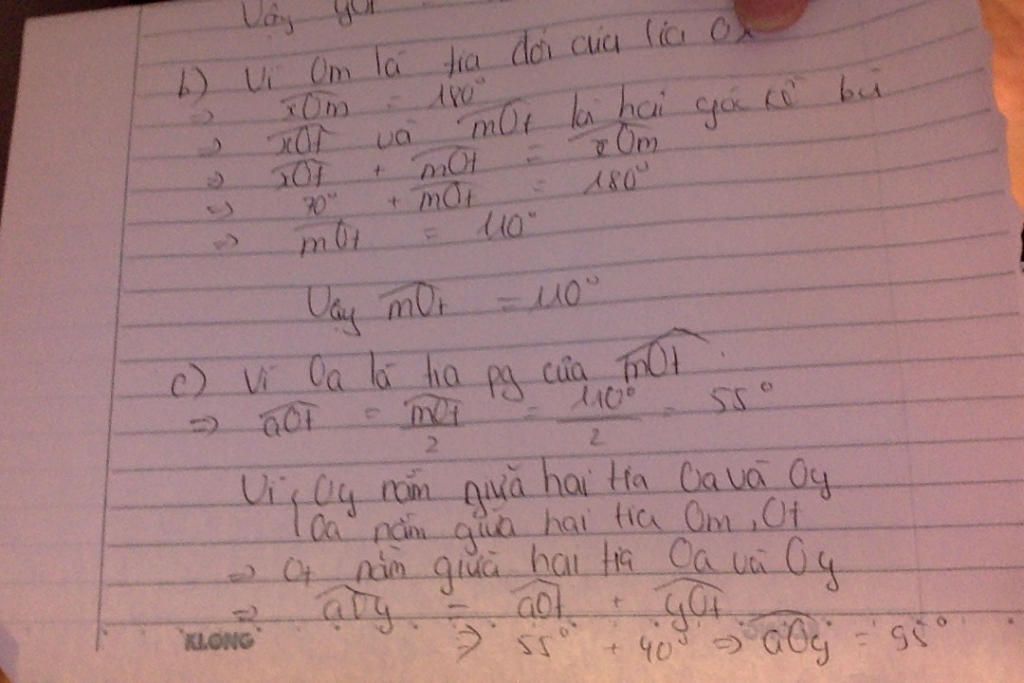 Vậy yOt
b) Vì Om là tia đối của tia Ox
=> xOm = 180°
=> xOt và mOt là hai góc kề bù
=> xOt + mOt = xOm
=> 70° + mOt = 180°
=> mOt = 110°
Vậy mOt = 110°
c) Vì Oa là tia pg của mOt
=> aOt = mOt/2 = 110°/2 = 55°
Vì { Oy nằm giữa hai tia Oa và Oy
{ Oa nằm giữa hai tia Om, Ot
=> Ot nằm giữa hai tia Oa và Oy
=> aOy = aOt + yOt
KLONG => 55° + 40° => aOy = 95°